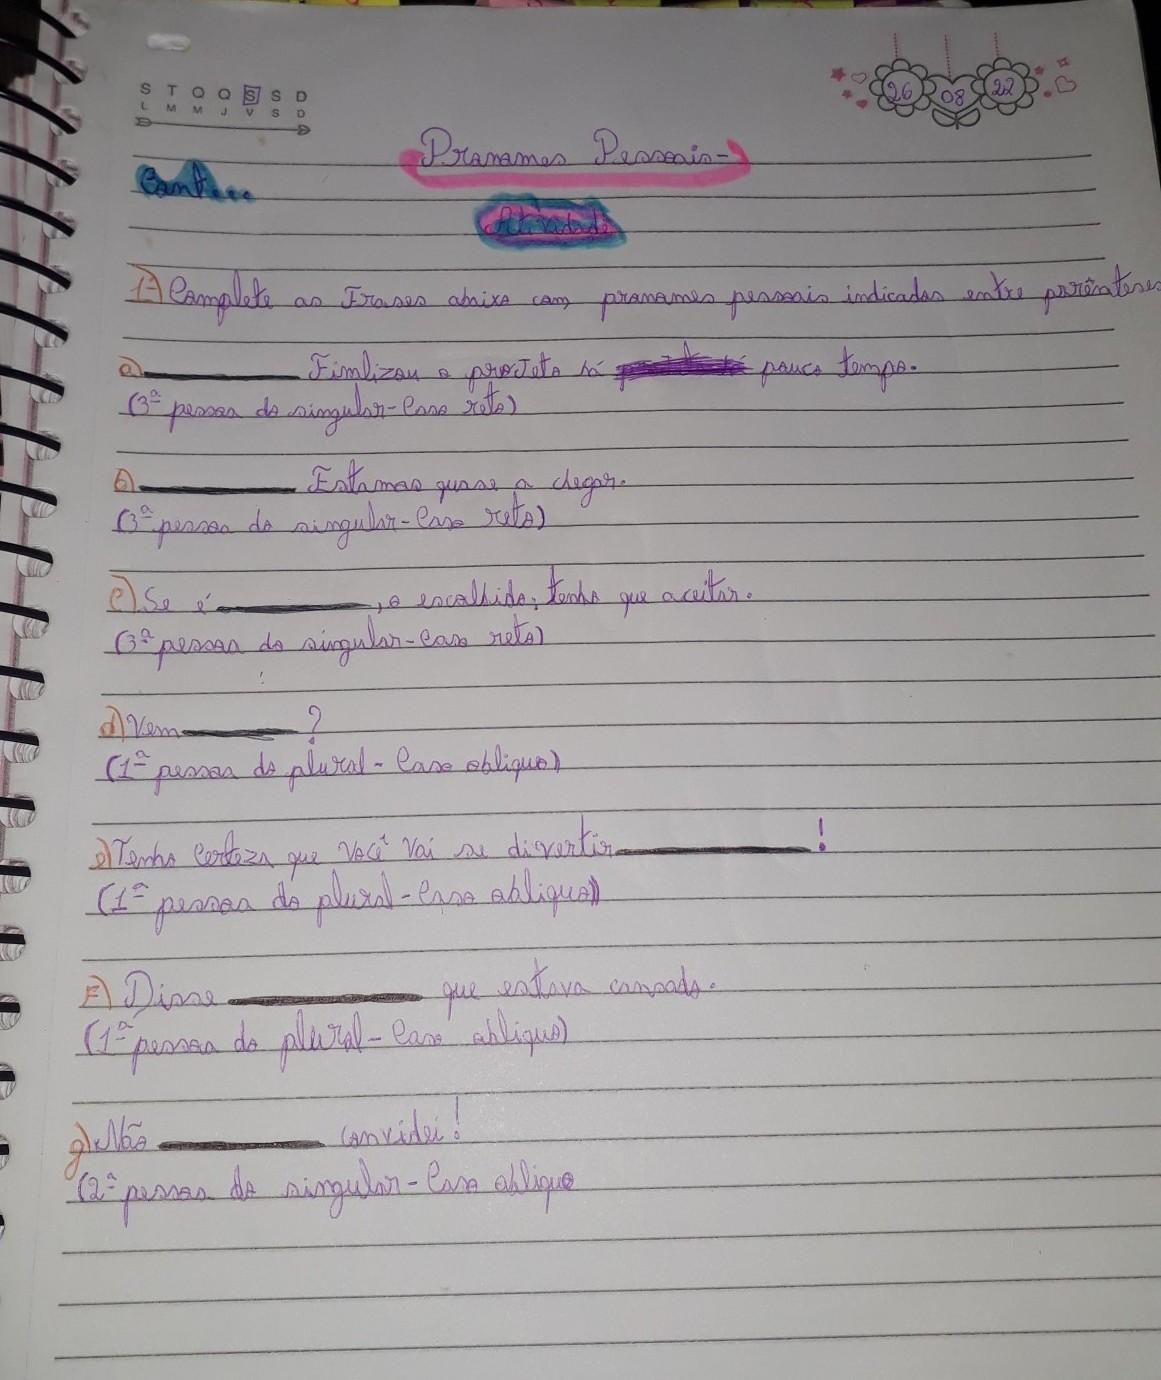 S T Q Q S S D
L M M J V S D
26 08 22
Pronomes Pessoais-
Cont...
Atividade
1-) Complete as Frases abaixo com, pronomes pessoais indicados entre parênteses
a) Finlizou o projeto há pouco tempo.
(3ª pessoa do singular-Caso reto)
b) Estamos quase a chegar.
(3ª pessoa do singular-Caso reto)
c) Se é , o escolhido, tenho que aceitar.
(3ª pessoa do singular-Caso reto)
d) Vem ?
(1ª pessoa do plural-Caso oblíquo)
e) Tenho certeza que você vai se divertir !
(1ª pessoa do plural-Caso oblíquo)
F) Disse que estava cansado.
(1ª pessoa do plural-Caso oblíquo)
g) Não convidei!
(2ª pessoa do singular-Caso oblíquo